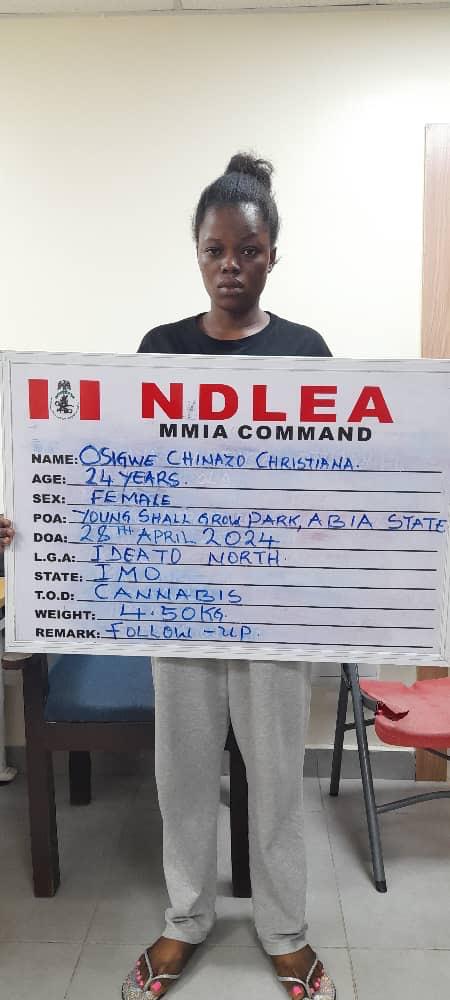 NDLEA
MMIA COMMAND
NAME: OSIGWE CHINAZO CHRISTIANA.
AGE: 24 YEARS.
SEX: FEMALE
POA: YOUNG SHALL GROW PARK, ABIA STATE
DOA: 28TH APRIL 2024
L.G.A: IDEATO NORTH.
STATE: IMO
T.O.D: CANNABIS
WEIGHT: 4.50KG.
REMARK: FOLLOW-UP.